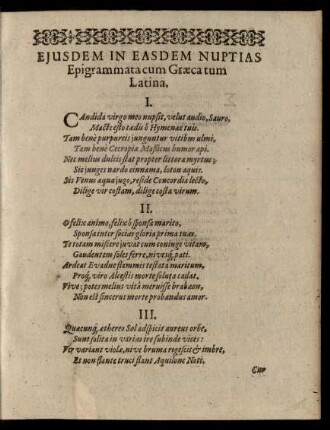 EJUSDEM IN EASDEM NUPTIAS
Epigrammata cum Græca tum
Latina.
I.
CAndida virgo meo nupsit, velut audio, Sauro,
Macte esto tædis ô Hymenæe tuis.
Tam benè purpureis junguntur vitibus ulmi,
Tam benè Cecropiæ Massicus humor api.
Nec melius dulcis stat propter littora myrtus;
Sic junges nardo cinnama, loton aquis.
Sis Venus aqua jugo, reside Concordia lecto,
Dilige vir costam, dilige costa virum.
II.
O felix animo, felix ô sponse marito,
Sponsa inter socias gloria prima tuas.
Te totam miscere juvat cum conjuge vitam,
Gaudentem soles ferre, nivesq́, pati.
Ardeat Evadne flammis testata maritum,
Proq́, viro Alcestis morte soluta cadat,
Vive; potes melius vitâ meruisse brabæon,
Non est sincerus morte probandus amor.
III.
Quæcunq́, æthereo Sol adspicit aureus orbe,
Sunt solita in varias ire subinde vices:
Ver variant violæ, nive bruma rigescit & imbre,
Et non stante truci flant Aquilone Noti,
Cur